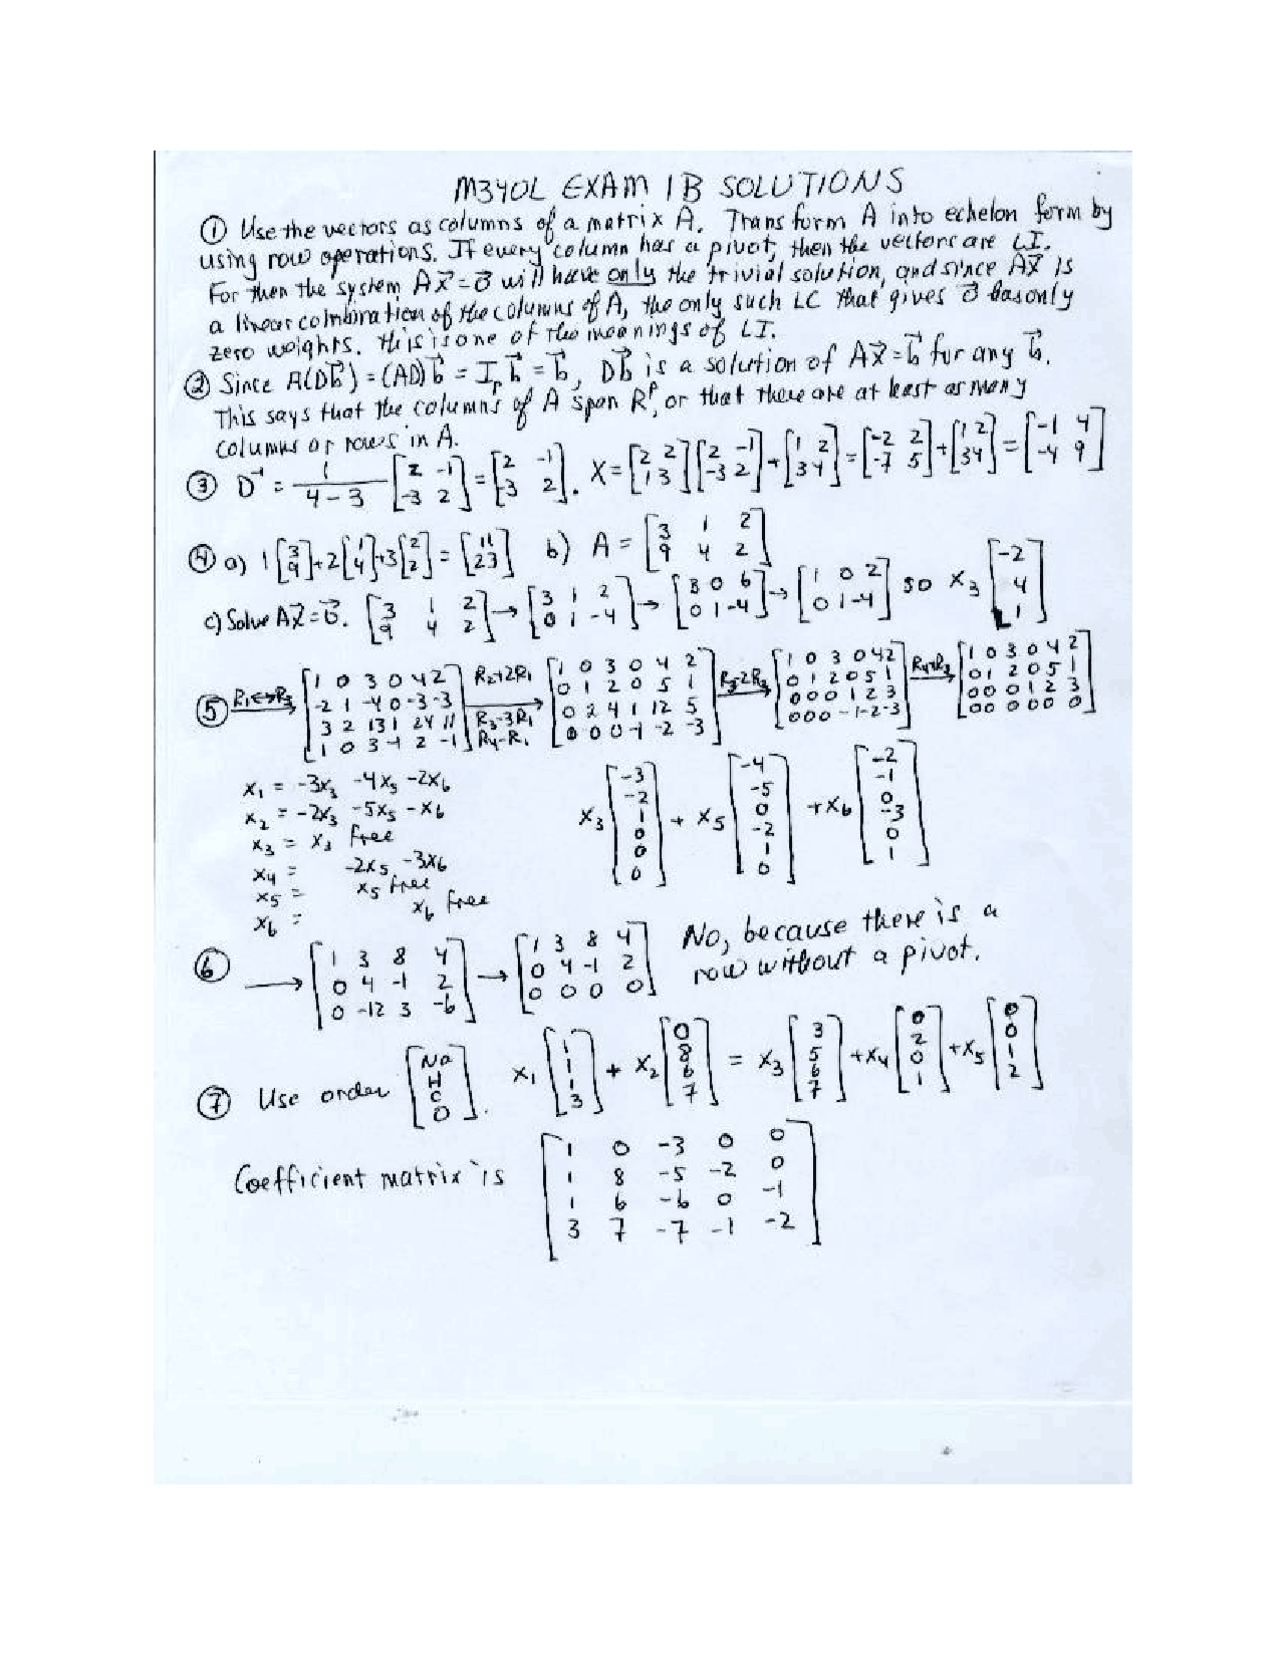 M340L EXAM 1B SOLUTIONS
① Use the vectors as columns of a matrix A. Transform A into echelon form by
using row operations. If every column has a pivot, then the vectors are LI.
For then the system Ax⃗=0⃗ will have only the trivial solution, and since Ax⃗ is
a linear combination of the columns of A, the only such LC that gives 0⃗ has only
zero weights. This is one of the meanings of LI.
② Since A(Db⃗) = (AD)b⃗ = I_p b⃗ = b⃗, Db⃗ is a solution of Ax⃗=b⃗ for any b⃗.
This says that the columns of A span R^p, or that there are at least as many
columns as rows in A.
③ D^-1 = 1/(4-3) [2 -1; -3 2] = [2 -1; -3 2]. X = [2 2; 1 3][2 -1; -3 2] + [1 2; 3 4] = [-2 2; -7 5] + [1 2; 3 4] = [-1 4; -4 9]
④ a) 1[3; 9]+2[1; 4]+3[2; 2] = [11; 23] b) A = [3 1 2; 9 4 2]
c) Solve Ax⃗=0⃗. [3 1 2; 9 4 2] → [3 1 2; 0 1 -4] → [3 0 6; 0 1 -4] → [1 0 2; 0 1 -4] so x₃ [-2; 4; 1]
⑤ R₁↔R₃ → [1 0 3 0 4 2; -2 1 -4 0 -3 -3; 3 2 13 1 24 11; 1 0 3 -1 2 -1] R₂+2R₁ R₃-3R₁ R₄-R₁ → [1 0 3 0 4 2; 0 1 2 0 5 1; 0 2 4 1 12 5; 0 0 0 -1 -2 -3] R₃-2R₂ → [1 0 3 0 4 2; 0 1 2 0 5 1; 0 0 0 1 2 3; 0 0 0 -1 -2 -3] R₄+R₃ → [1 0 3 0 4 2; 0 1 2 0 5 1; 0 0 0 1 2 3; 0 0 0 0 0 0]
x₁ = -3x₃ -4x₅ -2x₆
x₂ = -2x₃ -5x₅ -x₆
x₃ = x₃ free
x₄ = -2x₅ -3x₆
x₅ = x₅ free
x₆ = x₆ free
x₃ [-3; -2; 1; 0; 0; 0] + x₅ [-4; -5; 0; -2; 1; 0] + x₆ [-2; -1; 0; -3; 0; 1]
⑥ → [1 3 8 4; 0 4 -1 2; 0 -12 3 -6] → [1 3 8 4; 0 4 -1 2; 0 0 0 0] No, because there is a
row without a pivot.
⑦ Use order [Na; H; C; O]. x₁ [1; 1; 1; 3] + x₂ [0; 8; 6; 7] = x₃ [3; 5; 6; 7] + x₄ [0; 2; 0; 1] + x₅ [0; 0; 1; 2]
Coefficient matrix is [1 0 -3 0 0; 1 8 -5 -2 0; 1 6 -6 0 -1; 3 7 -7 -1 -2]